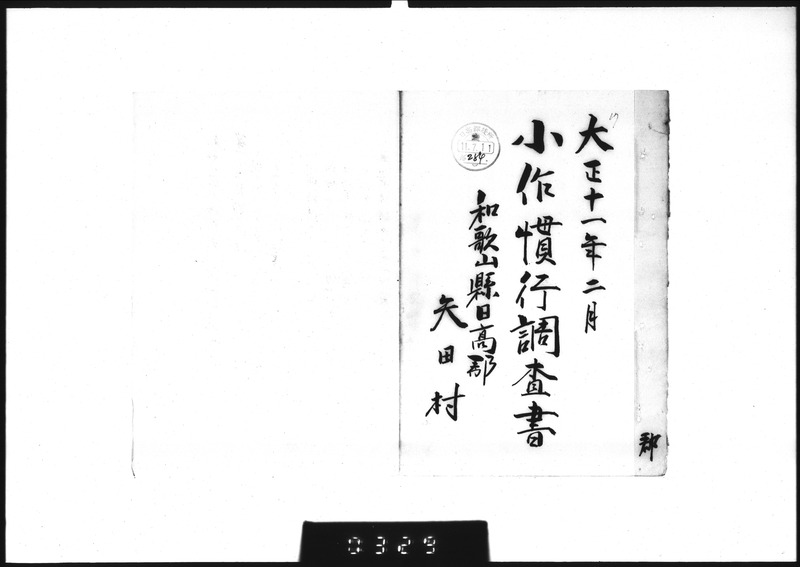 大正十一年二月
小作慣行調査書
和歌山縣日高郡
矢田村
11.7.11
284
郡
0329